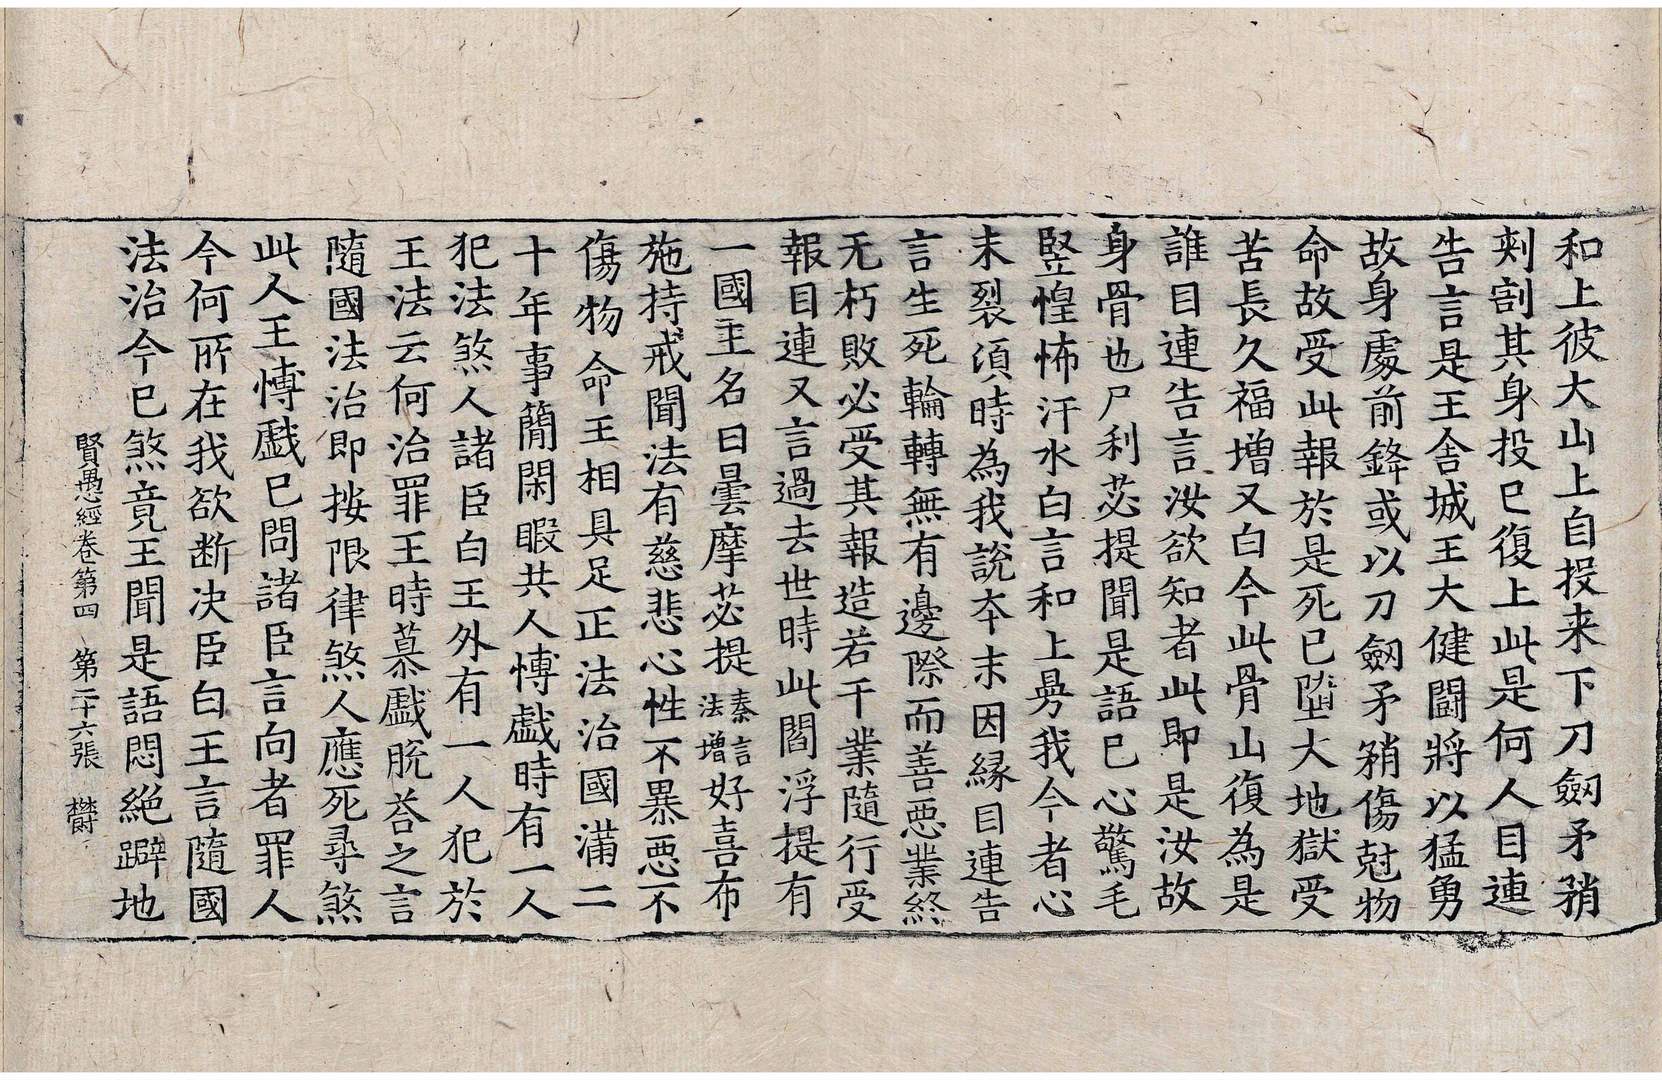 和上彼大山上自投来下刀劔矛矟
刾割其身投已復上此是何人目連
告言是王舍城王大健鬪將以猛勇
故身處前鋒或以刀劔矛矟傷尅物
命故受此報於是死已墮大地獄受
苦長久福增又白今此骨山復為是
誰目連告言汝欲知者此即是汝故
身骨也尸利苾提聞是語已心驚毛
竪惶怖汗水白言和上曼我今者心
未裂湏時為我說夲末因縁目連告
言生死輪轉無有邊際而善惡業終
无朽敗必受其報造若干業隨行受
報目連又言過去世時此閻浮提有
一國王名曰曇摩苾提秦言法增好喜布
施持戒聞法有慈悲心性不暴惡不
傷物命王相具足正法治國滿二
十年事簡閑暇共人慱戲時有一人
犯法煞人諸臣白王外有一人犯於
王法云何治罪王時慕戲脫荅之言
隨國法治即按限律煞人應死尋煞
此人王慱戲已問諸臣言向者罪人
今何所在我欲断决臣白王言隨國
法治今已煞竟王聞是語悶絕躃地
賢愚經卷第四 第二十六張 欝